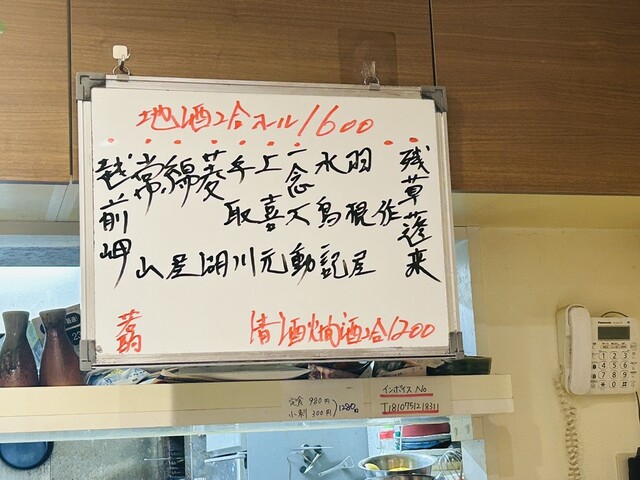 地酒2合オール1600
残草蓬来
作
羽根屋
水鳥記
一念不動
上喜元
手取川
菱湖
綿屋
常山
越前岬
清酒燗酒2合1200
定食 980円
300円
1280円
インボイス No
T1810751218311
Panasonic